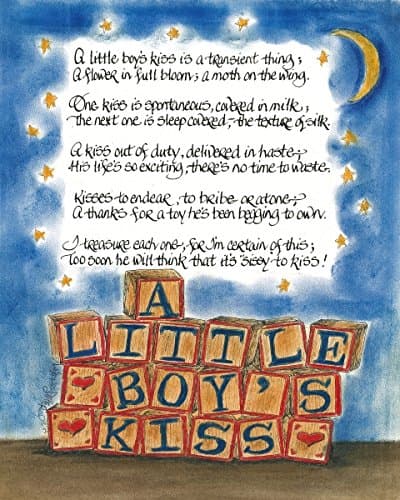 A little boy's kiss is a transient thing;
A flower in full bloom; a moth on the wing.
One kiss is spontaneous, covered in milk;
The next one is sleep covered,-the texture of silk.
A kiss out of duty, delivered in haste;
His life's so exciting, there's no time to waste.
Kisses to endear, to bribe or atone;
A thanks for a toy he's been begging to own.
I treasure each one, for I'm certain of this;
Too soon he will think that it's 'sissy to kiss!
A
LITTLE
BOY'S
KISS